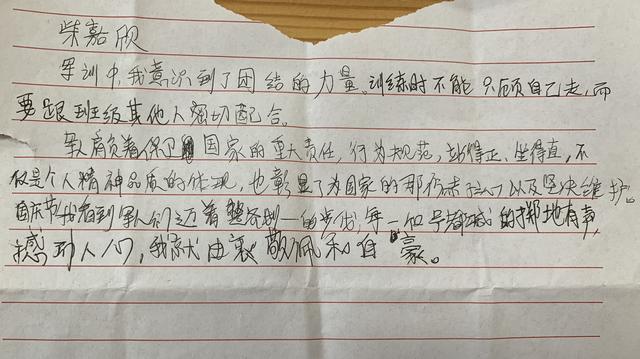 柴嘉欣
军训中,我意识到了团结的力量。训练时不能只顾自己走,而
要跟班级其他人密切配合。
军人肩负着保卫国家的重大责任,行为规范,站得正、坐得直,不
仅是个人精神品质的体现,也彰显了为国家的那份 以及坚决维护。
国庆节我看到军人们迈着整齐划一的步伐,每一句号都喊的掷地有声,
撼动人心,我就由衷敬佩和自豪。